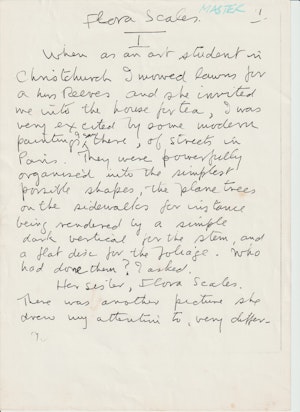 MASTER 1
Flora Scales.
I
When as an art student in
Christchurch I mowed lawns for
a Miss Reeves and she invited
me into the house for tea, I was
very excited by some modern
paintings there, of streets in
Paris. They were powerfully
organised into the simplest
possible shapes, - the plane trees
on the sidewalks for instance
being rendered by a simple
dark vertical for the stem, and
a flat disc for the foliage. Who
had done them? I asked.
Her sister, Flora Scales.
There was another picture she
drew my attention to, very differ-